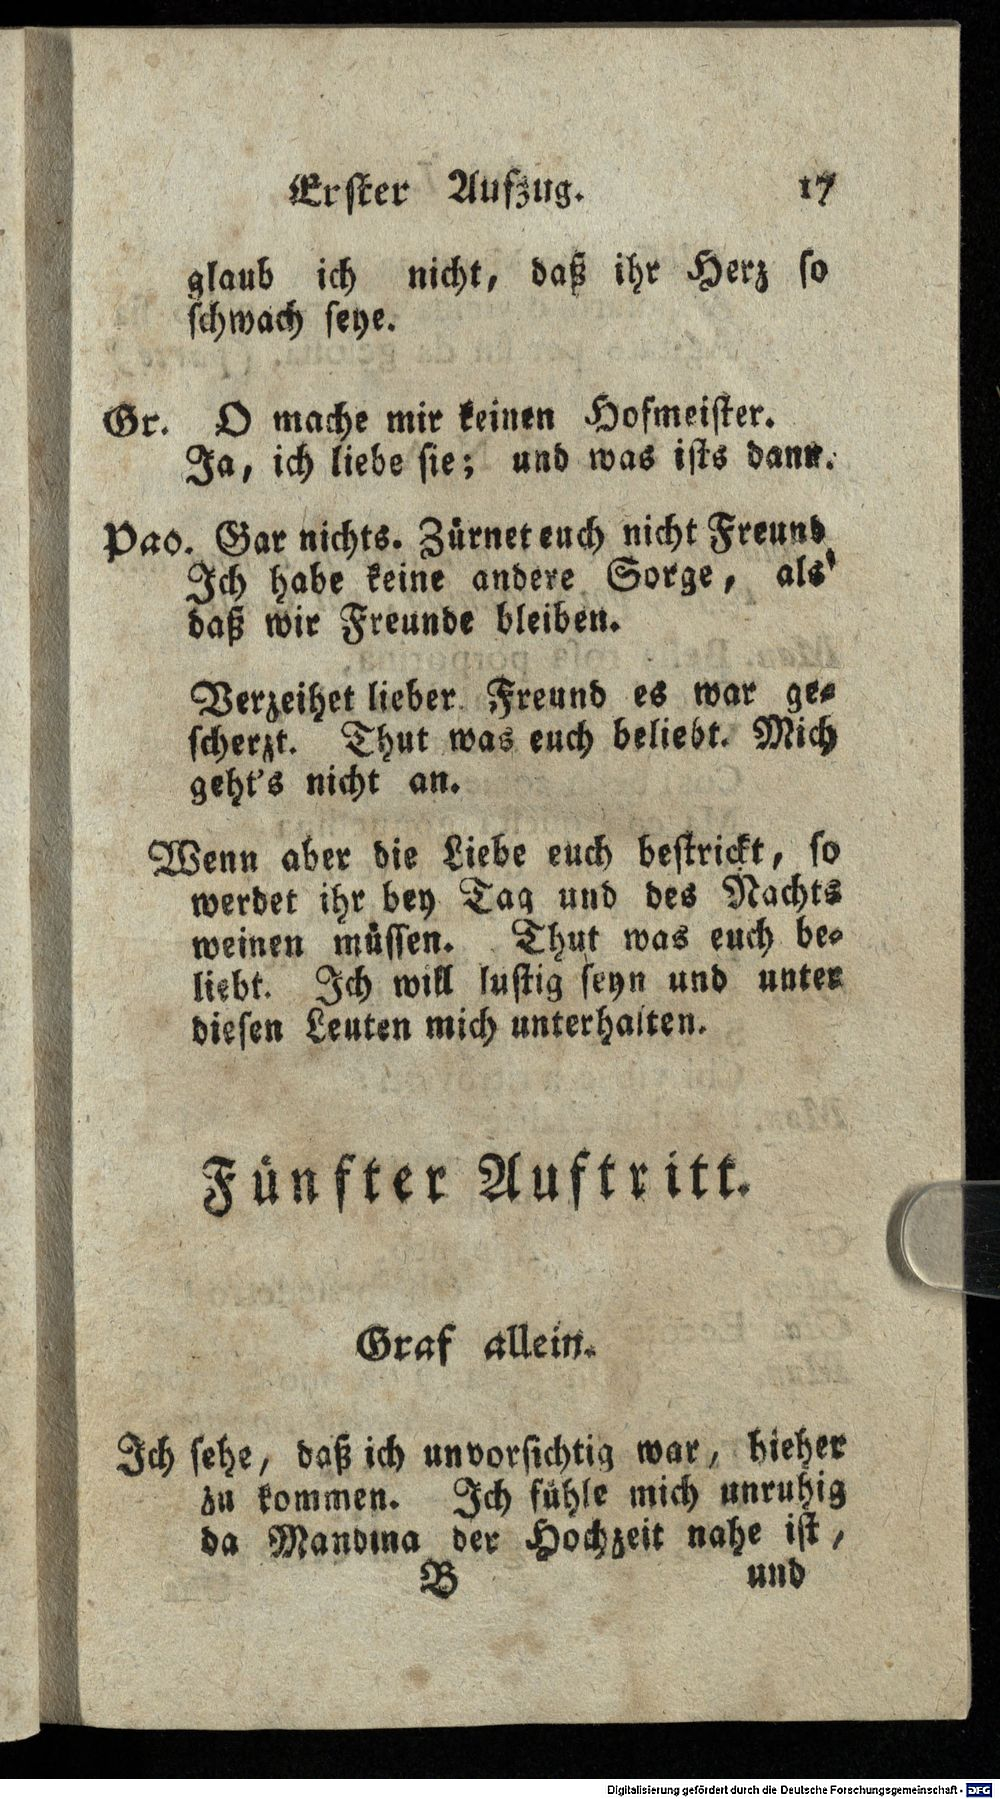 Erster Aufzug. 17
glaub ich nicht, daß ihr Herz so
schwach seye.
Gr. O mache mir keinen Hofmeister.
Ja, ich liebe sie; und was ists dann.
Pao. Gar nichts. Zürnet euch nicht Freund
Ich habe keine andere Sorge, als'
daß wir Freunde bleiben.
Verzeihet lieber Freund es war ge-
scherzt. Thut was euch beliebt. Mich
geht's nicht an.
Wenn aber die Liebe euch bestrickt, so
werdet ihr bey Tag und des Nachts
weinen müssen. Thut was euch be-
liebt. Ich will lustig seyn und unter
diesen Leuten mich unterhalten.
Fünfter Auftritt.
Graf allein.
Ich sehe, daß ich unvorsichtig war, hieher
zu kommen. Ich fühle mich unruhig
da Mandina der Hochzeit nahe ist,
B und
Digitalisierung gefördert durch die Deutsche Forschungsgemeinschaft - DFG